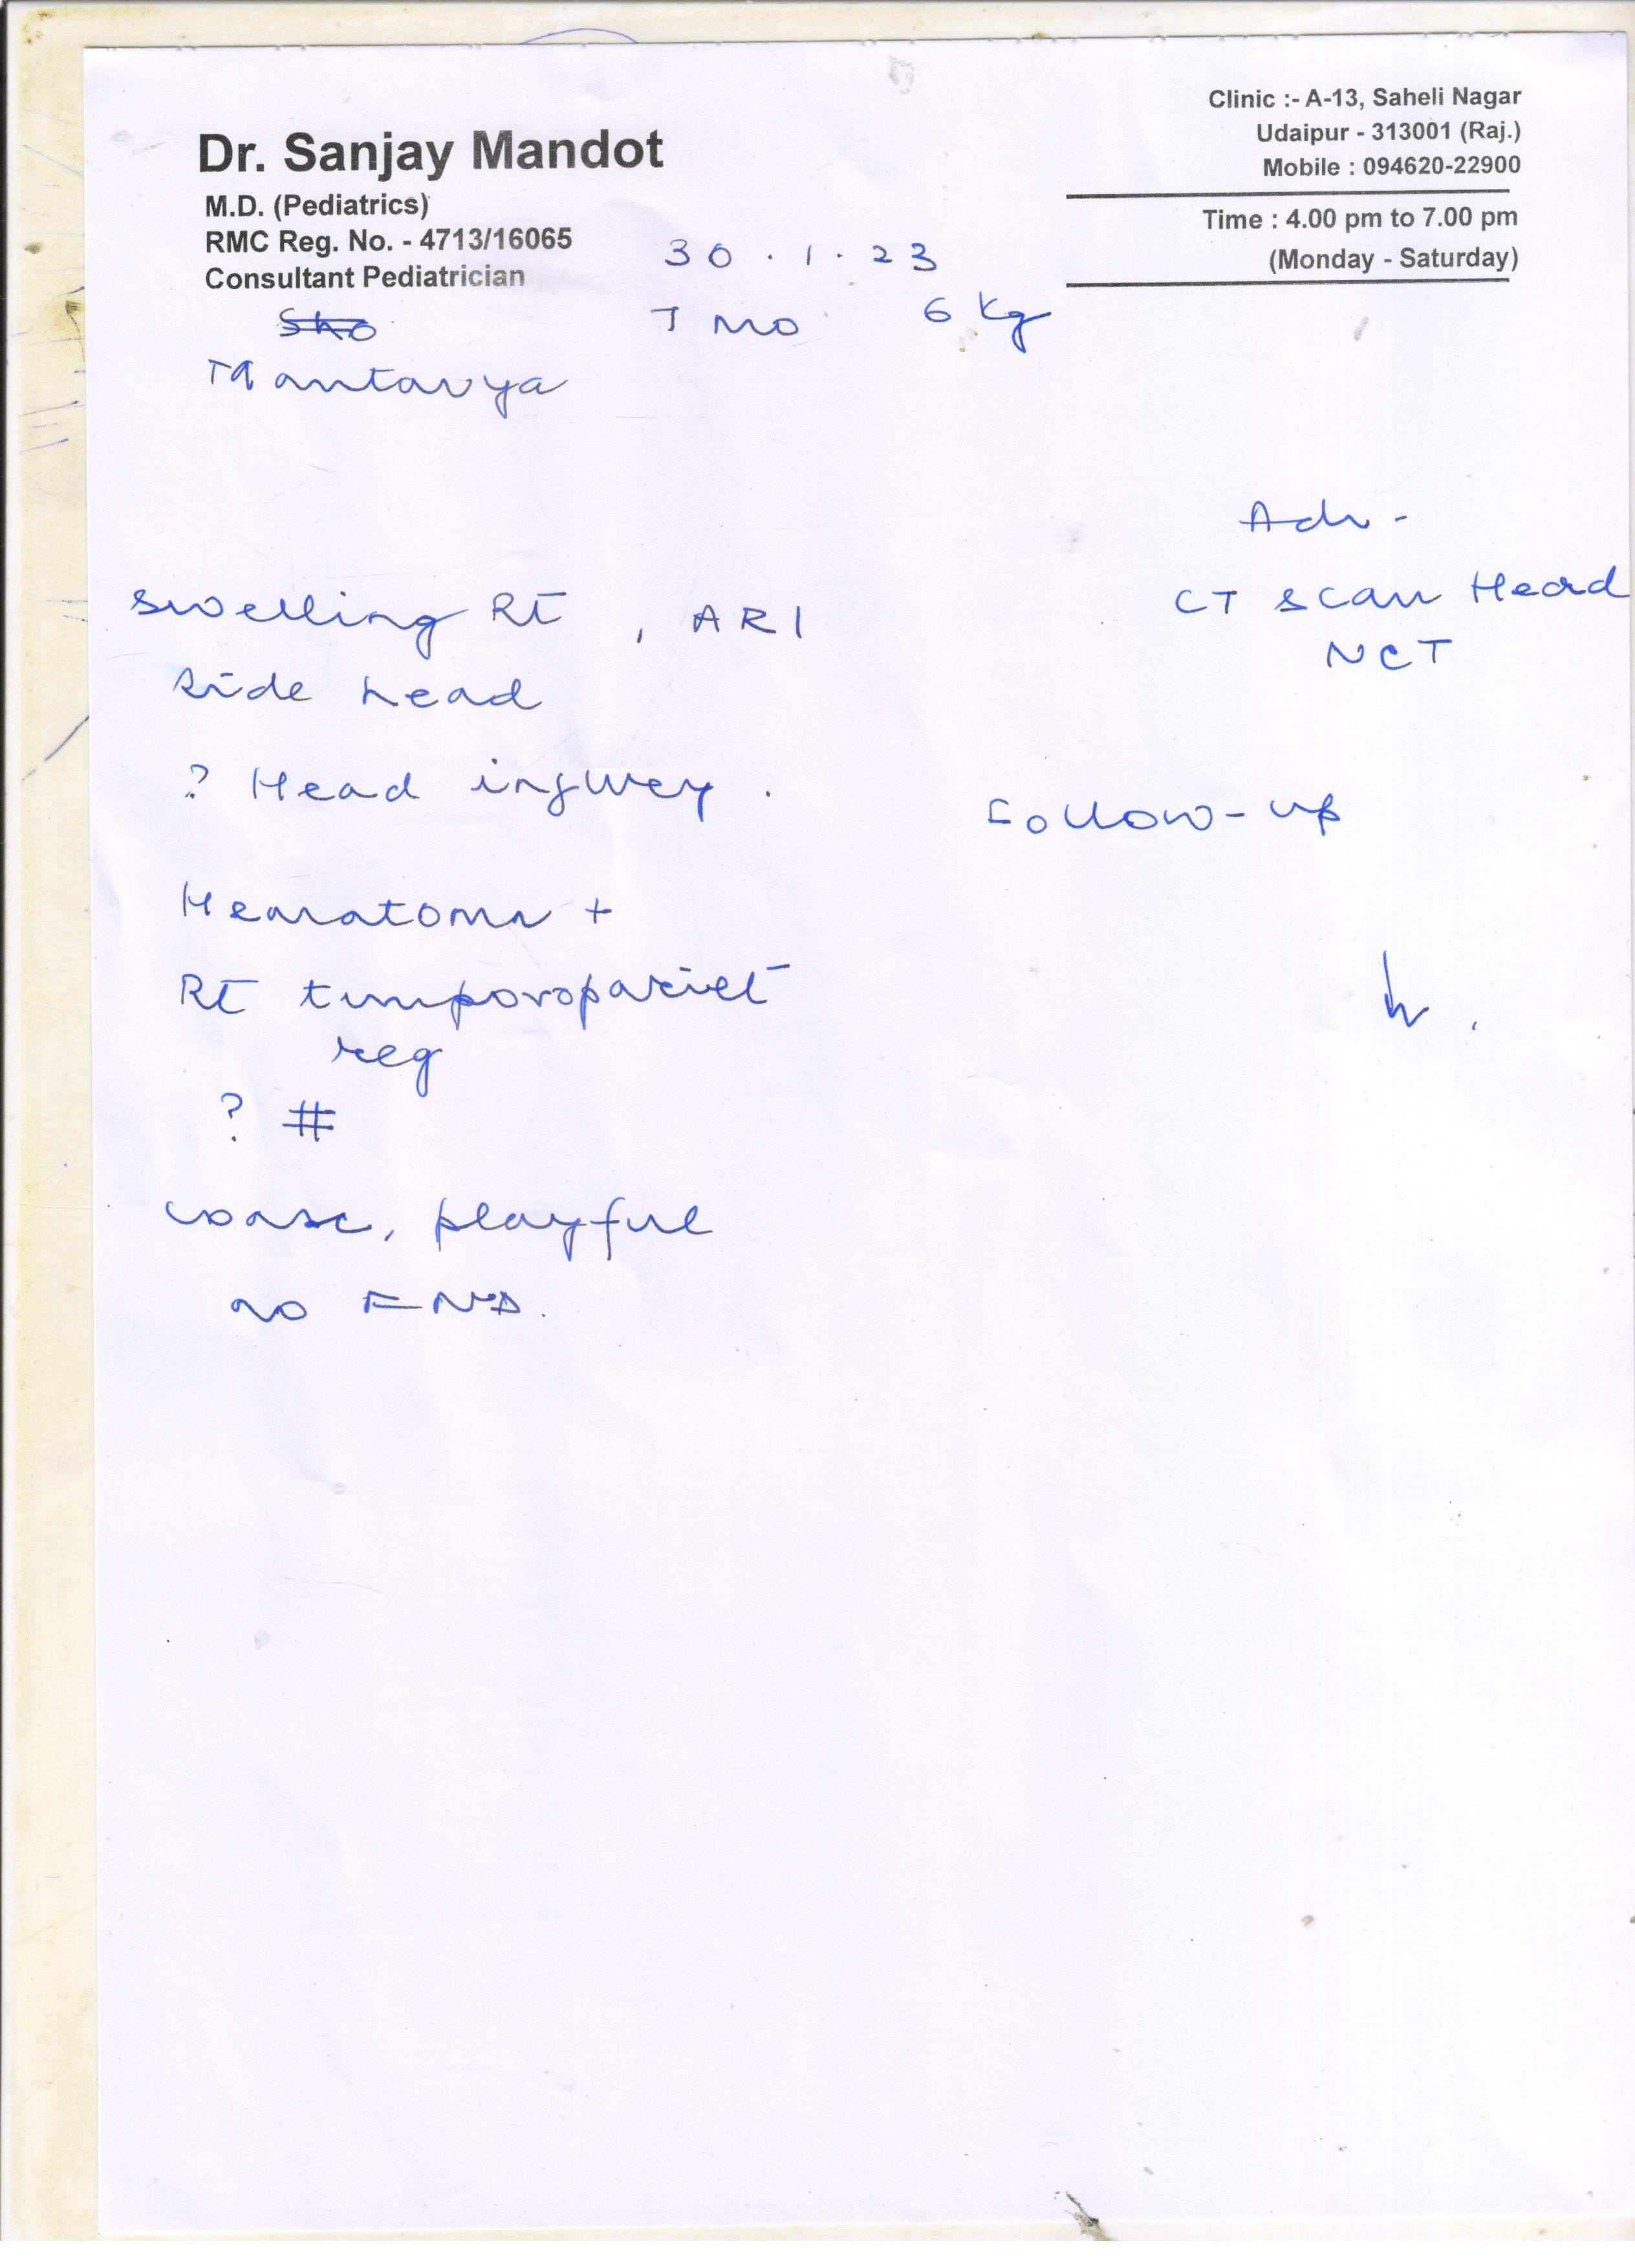 Dr. Sanjay Mandot
M.D. (Pediatrics)
RMC Reg. No. - 4713/16065
Consultant Pediatrician
Clinic :- A-13, Saheli Nagar
Udaipur - 313001 (Raj.)
Mobile : 094620-22900
Time : 4.00 pm to 7.00 pm
(Monday - Saturday)
30.1.23
7 mo 6 kg
Mantavya
Adv -
CT scan Head
NCT
swelling Rt, ARI
side head
? Head injury.
Follow-up
Hematoma +
Rt temporopariet
reg
? #
playful
no FND.